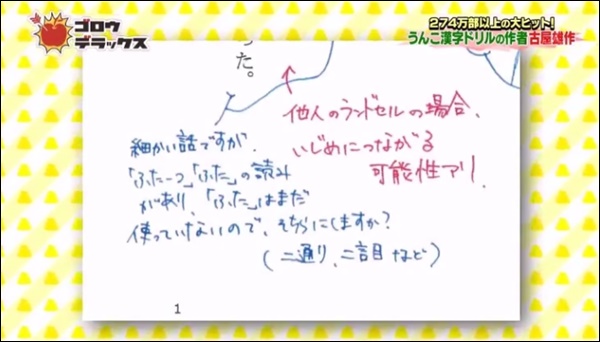 ゴロウ
デラックス
274万部以上の大ヒット!
うんこ漢字ドリルの作者 古屋雄作
った。
他人のランドセルの場合、
いじめにつながる
可能性アリ.
細かい話ですが、
「ふた-つ」「ふた」の読み
があり、「ふた」はまだ
使っていないので、そちらにしますか?
(二通り、二言目など)
1